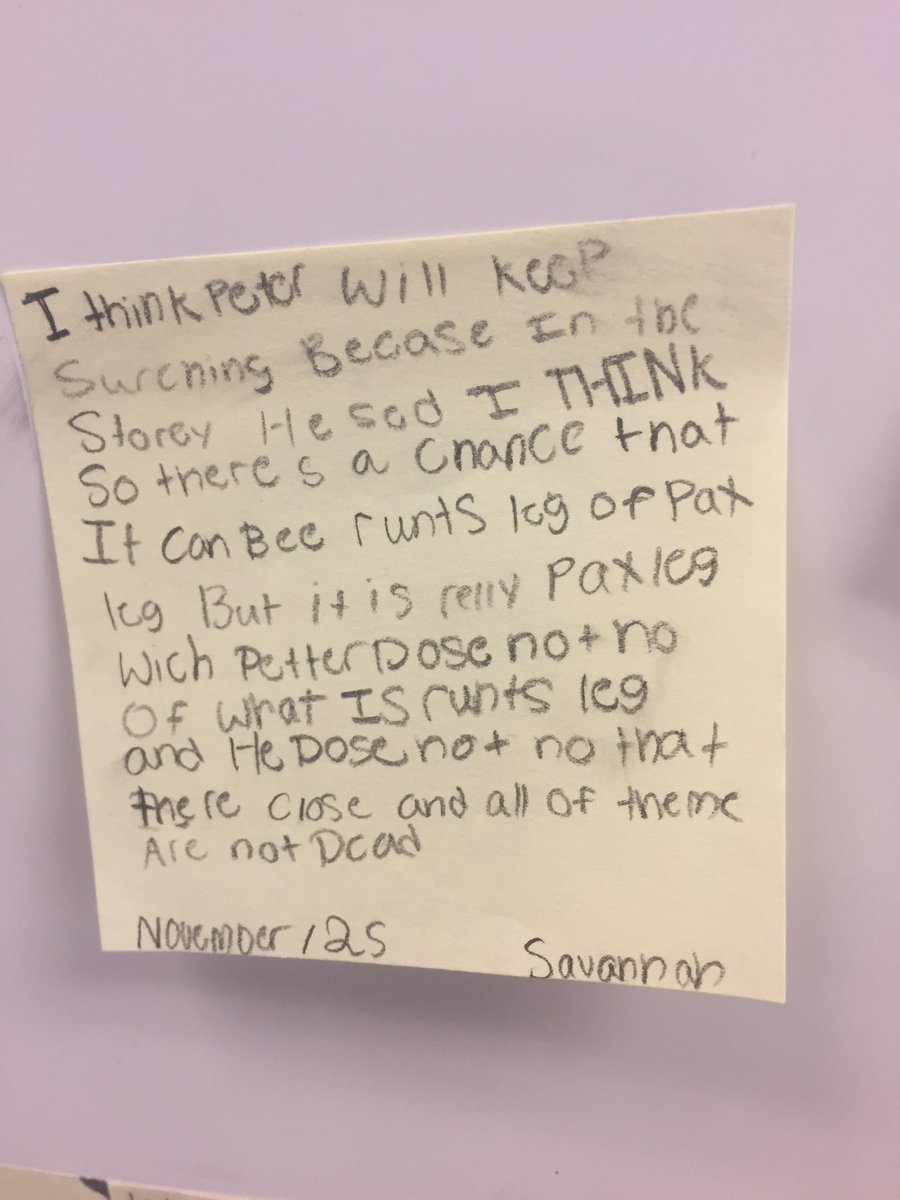 I think Peter will keep
Surching Becase In the
Storey He sed I THINK
So there's a chance that
It Can Bee runts leg or Pax
leg But it is relly Pax leg
Wich Petter Dose not no
Of what Is runts leg
and He Dose not no that
there close and all of theme
Are not Dead
November / 25
Savannah